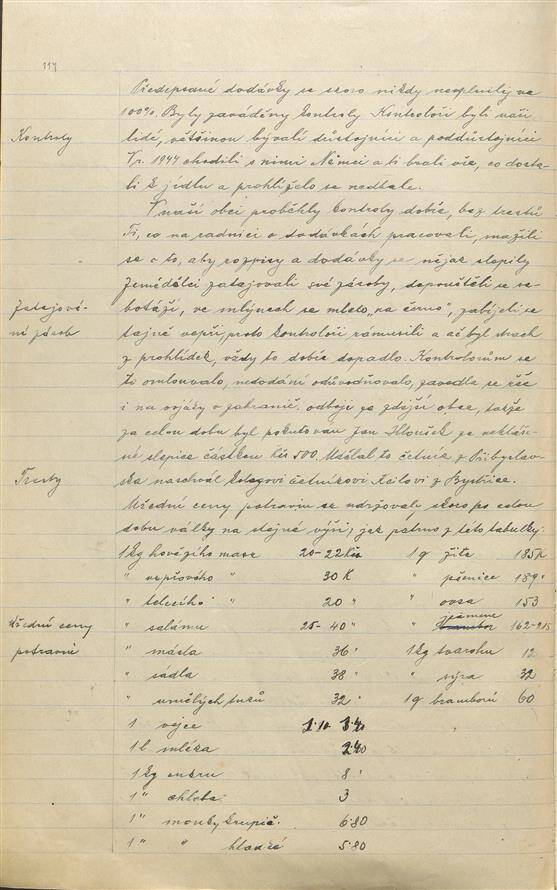 117
Předepsané dodávky se skoro nikdy nesplnily na
100%. Byly zaváděny kontroly. Kontroloři byli naši
Kontroly
lidé, většinou bývalí důstojníci a poddůstojníci
V r. 1944 chodili s nimi Němci a ti brali vše, co dosta-
li k jídlu a prohlíželo se nedbale.
V naší obci proběhly kontroly dobře, bez trestů
Ti, co na radnici o dodávkách pracovali, snažili
se o to, aby rozpisy a dodávky se nějak slepily
Zemědělci zatajovali své zásoby, dopouštěli se sa-
Zatajová-
botáží, ve mlýnech se mlelo "na černo", zabíjeli se
ní zásob
tajně vepři, proto kontroloři rámusili a ač byl strach
z prohlídek, vždy to dobře dopadlo. Kontrolorům se
to omlouvalo, nedodání odůvodňovalo, zavedla se řeč
i na zahranič. odboje ze zdejší obce, takže
za celou dobu byl pokutován Jan Hloušek za
né slepice částkou Kčs 500. Udělal to četník z Přibyslav-
Tresty
ska naschvál kolegovi četníkovi z Bystřice.
Úřední ceny potravin se udržovaly skoro po celou
dobu války na stejné výši, jak patrno z této tabulky:
1 kg hovězího masa 20-22 Kčs 1 q žita 185 K
" vepřového " 30 K " pšenice 189 "
" telecího " 20 " " ovsa 153
Úřední ceny
" salámu 25-40 " " brambor ječmene 162-215
potravin
" másla 36 " 1 kg tvarohu 12
" sádla 38 " " sýra 32
" umělých tuků 32 " 1 q bramborů 60
1 vejce 1·10 1·40
1 l mléka 2·40
1 kg cukru 8 "
1 " chleba 3
1 " mouky krupič. 6·80
1 " " hladké 5·80